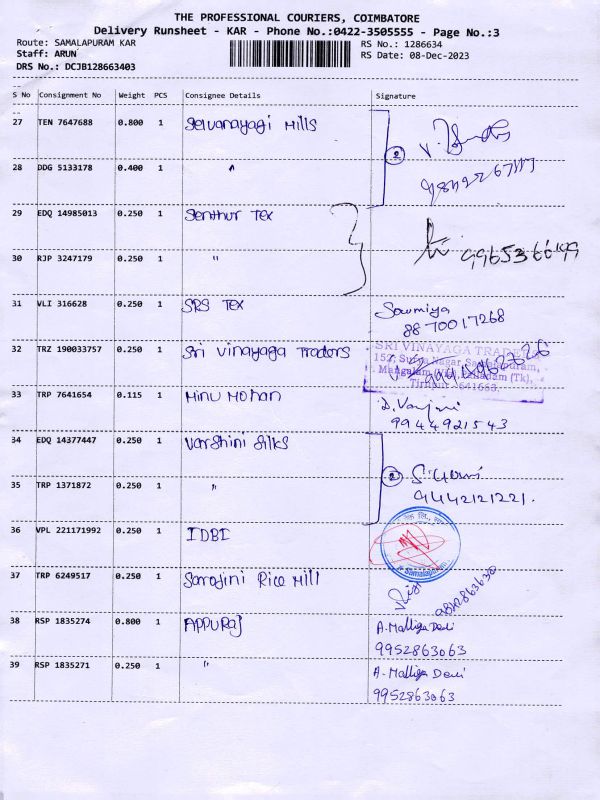 THE PROFESSIONAL COURIERS, COIMBATORE
Delivery Runsheet - KAR - Phone No.:0422-3505555 - Page No.:3
Route: SAMALAPURAM KAR RS No.: 1286634
Staff: ARUN RS Date: 08-Dec-2023
DRS No.: DCJB128663403
S No Consignment No Weight PCS Consignee Details Signature
27 TEN 7647688 0.800 1 Selvanayagi Mills
2
28 DDG 5133178 0.400 1 "
29 EDQ 14985013 0.250 1 Senthur Tex
30 RJP 3247179 0.250 1 "
31 VLI 316628 0.250 1 SRS Tex Sowmiya
8870017268
32 TRZ 190033757 0.250 1 Sri Vinayaga Traders SRI VINAYAGA TRADERS
152, Surya Nagar, Samalapuram,
Mangalam (Via), Palladam (Tk),
Tiruppur - 641663.
33 TRP 7641654 0.115 1 Minu Mohan
9944921543
34 EDQ 14377447 0.250 1 Varshini Silks
2
35 TRP 1371872 0.250 1 " 9442121221.
36 VPL 221171992 0.250 1 IDBI
Samalapuram
37 TRP 6249517 0.250 1 Sarojini Rice Mill
38 RSP 1835274 0.800 1 APPURAJ A. Malliga Devi
9952863063
39 RSP 1835271 0.250 1 " A. Malliga Devi
9952863063